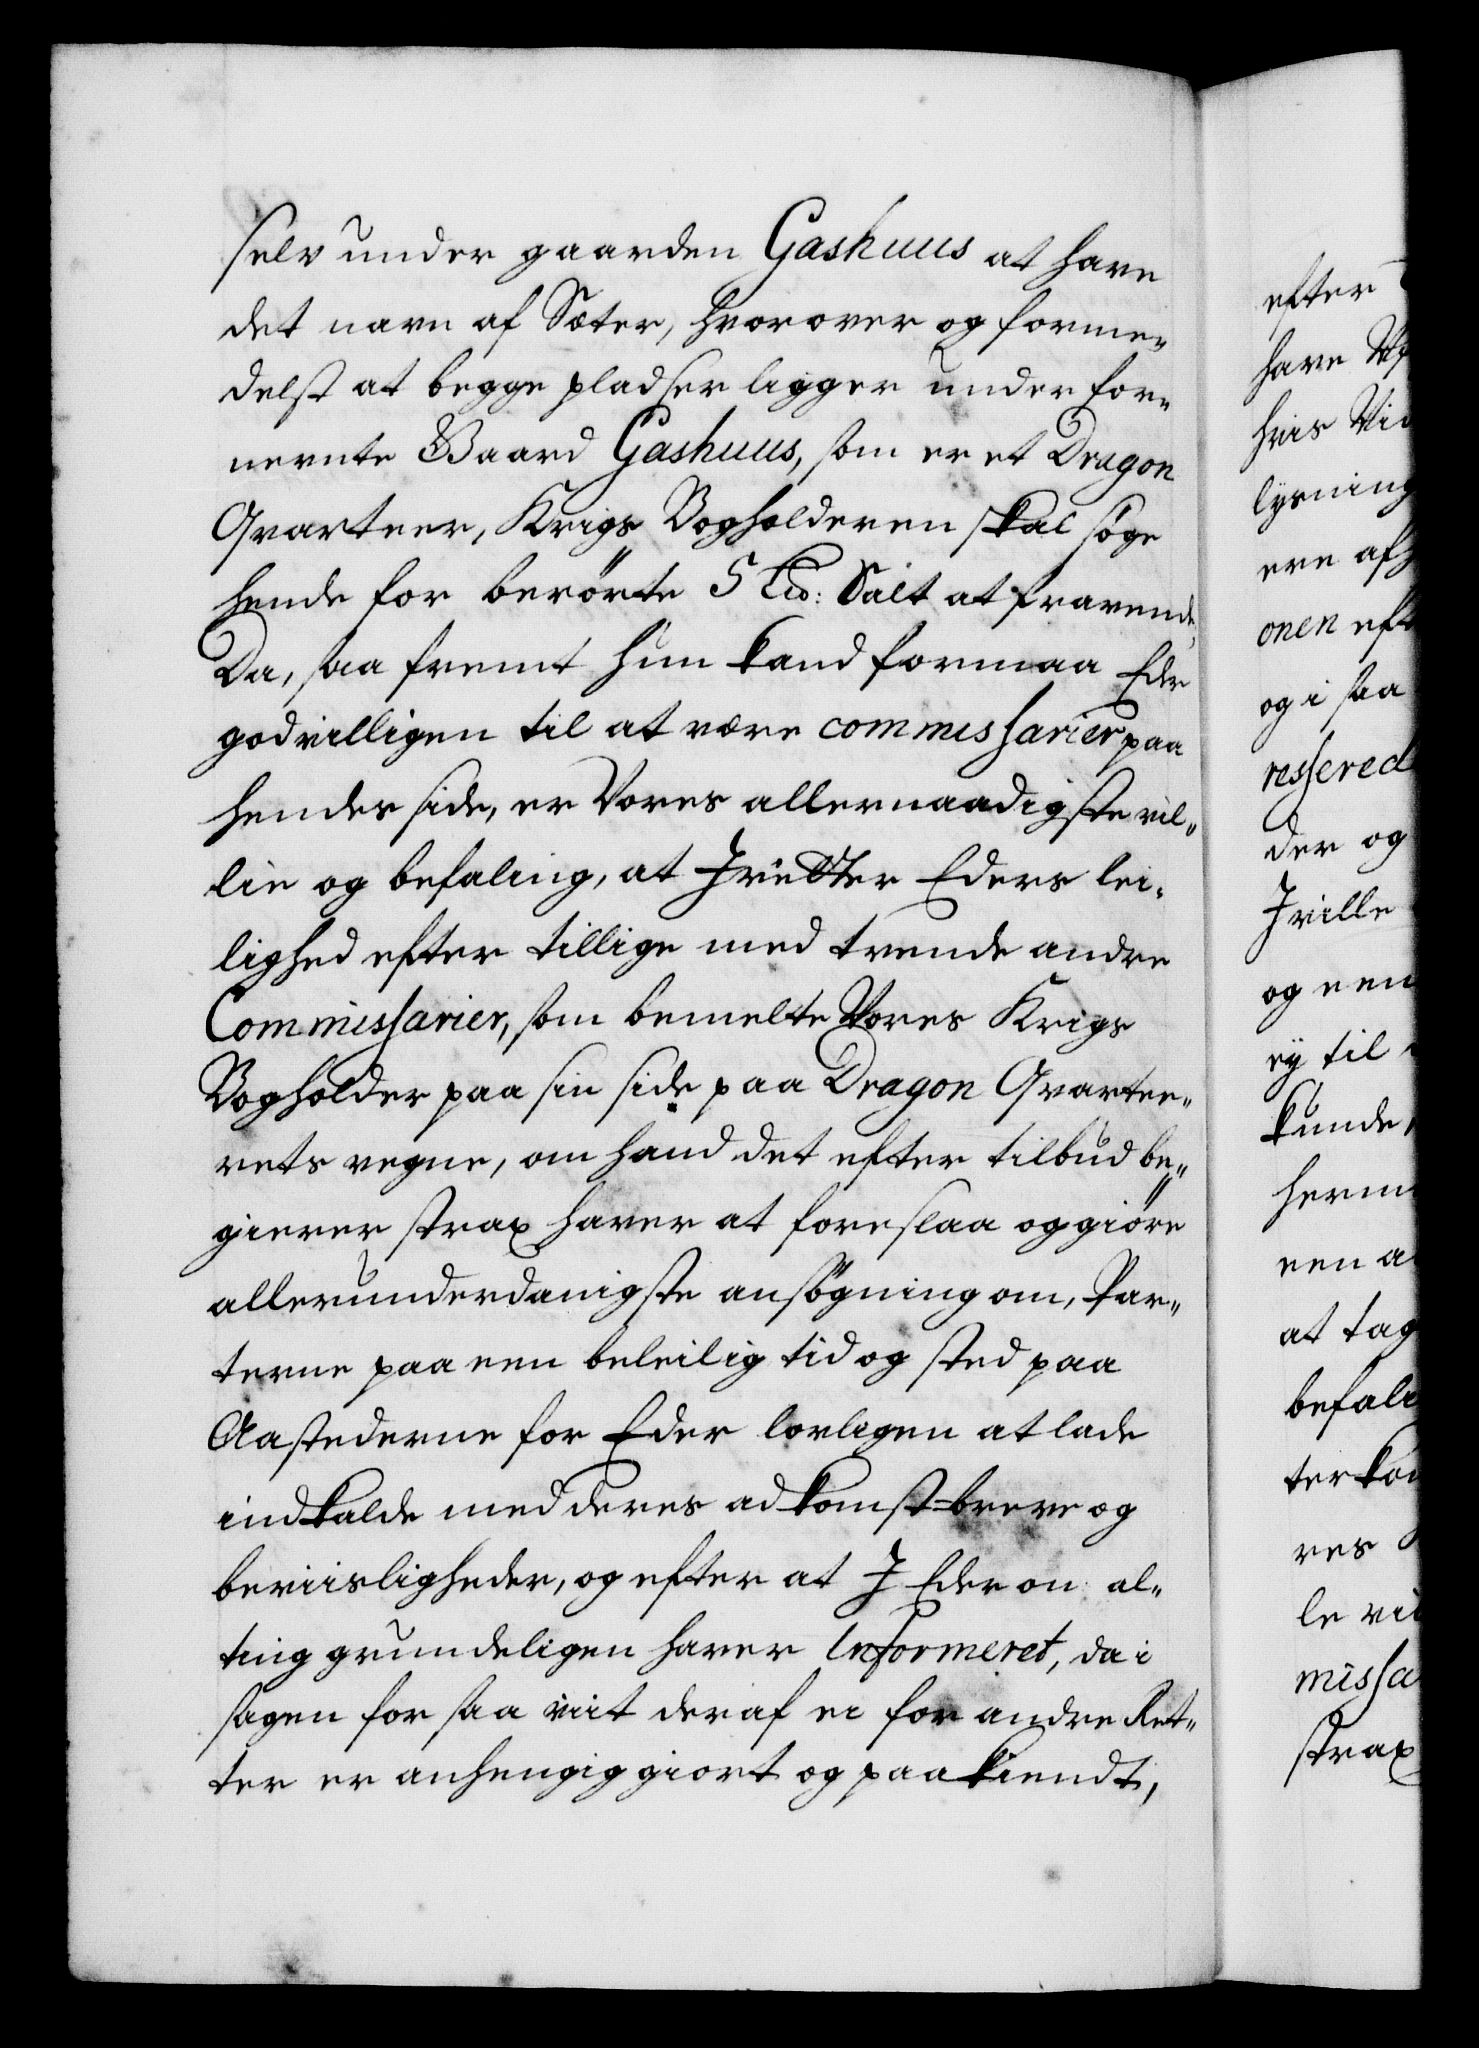 selv under gaarden Gashuus at have
det navn af Sæter, hvorover og forme„
delst at begge pladser ligger under for„
nevnte Gaard Gashuus, som er et Dragon
Qvarteer, Krigs Bogholderen skal søge
hende for berørte 5 Ld: Salt at fravende,
Da, saa fremt hun kand formaa Eder
godvilligen til at være commissarier paa
hendes side, er Vores allernaadigste vil„
lie og befaling, at I retter Eders lei„
lighed efter tillige med tvende andre
Commissarier, som bemelte Vores Krigs
Bogholder paa sin side paa Dragon Qvartee„
rets vegne, om hand det efter tilbud be„
gierer strax haver at foreslaa og giøre
allerunderdanigste ansøgning om, Par„
terne paa een beleilig tid og sted paa
Aastederne for Eder lovligen at lade
indkalde med deres adkomst breve og
beviisligheder, og efter at I Eder om al„
ting grundeligen haver Informeret, da i
sagen for saa viit deraf ei for andre Ret„
ter er anhengig giort og paakiendt,
efter
have
hvis
lysning
ere af
onen eft
og i saa
ressered
der og
I ville
og een
ey til
kunde,
herm
een a
at tag
befali
ter kom
res
le vi
missa
strax